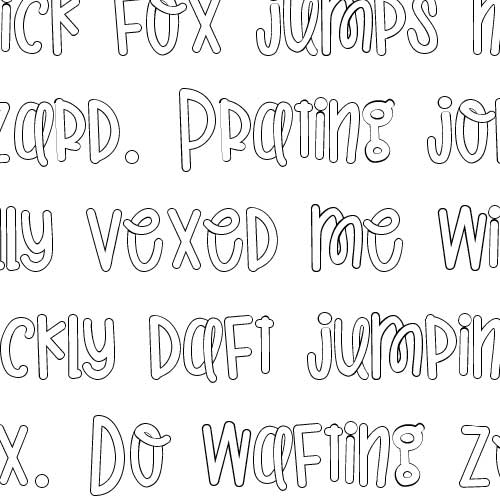 ick fox jumps n
zard. Prating jo
lly vexed me wi
ckly daft jumpin
x. Do wafting z